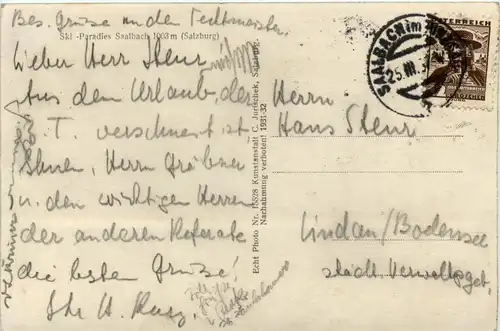 Bes. Grüsse an den Techtmeister,
Ski-Paradies Saalbach 1003 m (Salzburg)
Lieber Herr Steur
Aus dem Urlaub, der
z. T. verschneit ist
Ihnen, Herrn Gräbner
u. den wichtigen Herren
der anderen Referate
die besten Grüsse!
Ihr H. Kurz.
Echt Photo Nr. 15828 Kunstanstalt C. Jurischek, Salzburg.
Nachahmung verboten! 1931-32
SAALBACH im
25.III.
ÖSTERREICH
Herrn
Hans Steur
Lindau/Bodensee
städt. Verwaltgsgeb.